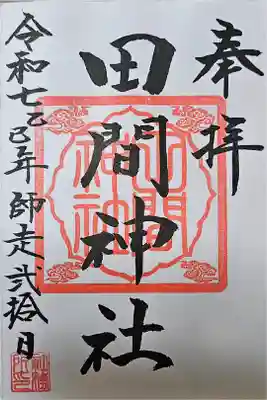 奉拝
田間神社
田間神社
令和七乙巳年 師走 弐拾日